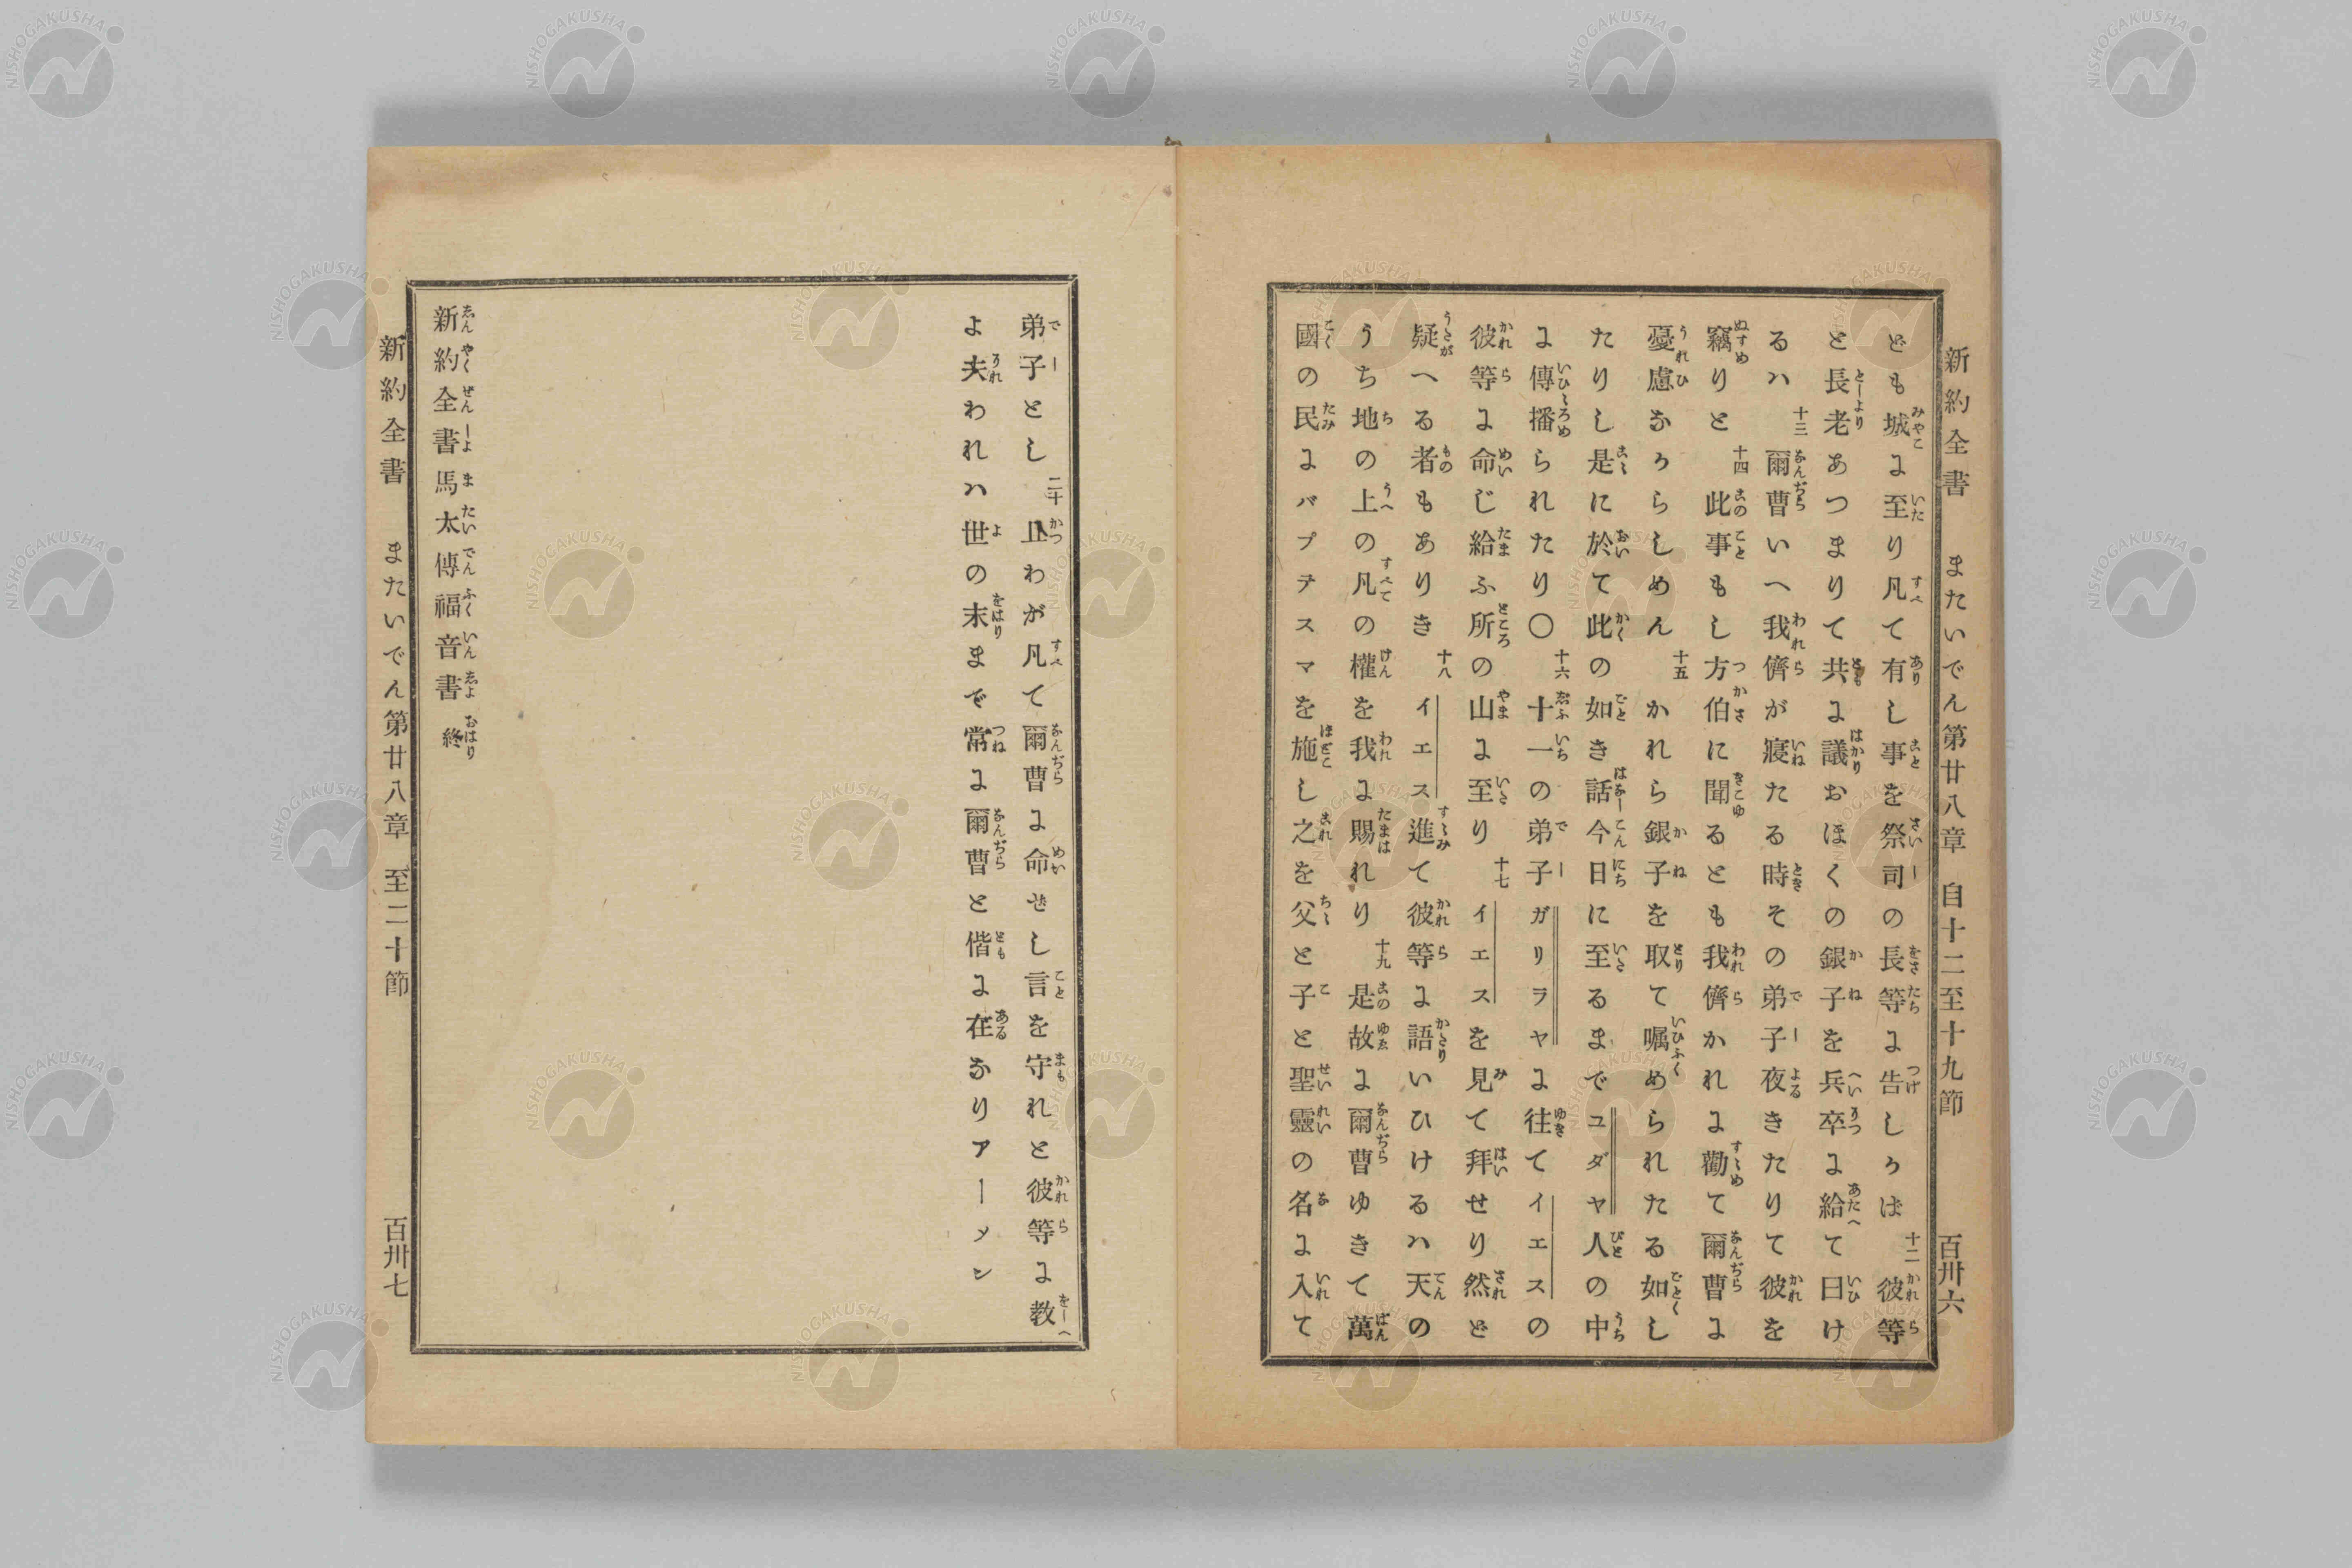 新約全書 またいでん第廿八章 自十二至十九節 百卅六
ども城に至り凡て有し事を祭司の長等に告しかば十二彼等
と長老あつまりて共に議おほくの銀子を兵卒に給て曰け
るハ十三爾曹いへ我儕が寢たる時その弟子夜きたりて彼を
竊りと十四此事もし方伯に聞るとも我儕かれに勸て爾曹に
憂慮なからしめん十五かれら銀子を取て囑められたる如し
たりし是に於て此の如き話今日に至るまでユダヤ人の中
に傳播られたり〇十六十一の弟子ガリラヤに往てイエスの
彼等に命じ給ふ所の山に至り十七イエスを見て拜せり然ど
疑へる者もありき十八イエス進て彼等に語いひけるハ天の
うち地の上の凡の權を我に賜れり十九是故に爾曹ゆきて萬
國の民にバプテスマを施し之を父と子と聖靈の名に入て
弟子とし二十且わが凡て爾曹に命ぜし言を守れと彼等に教
よ夫われハ世の末まで常に爾曹と偕に在なりアーメン
新約全書馬太傳福音書 終
新約全書 またいでん第廿八章 至二十節 百卅七
NISHOGAKUSHA